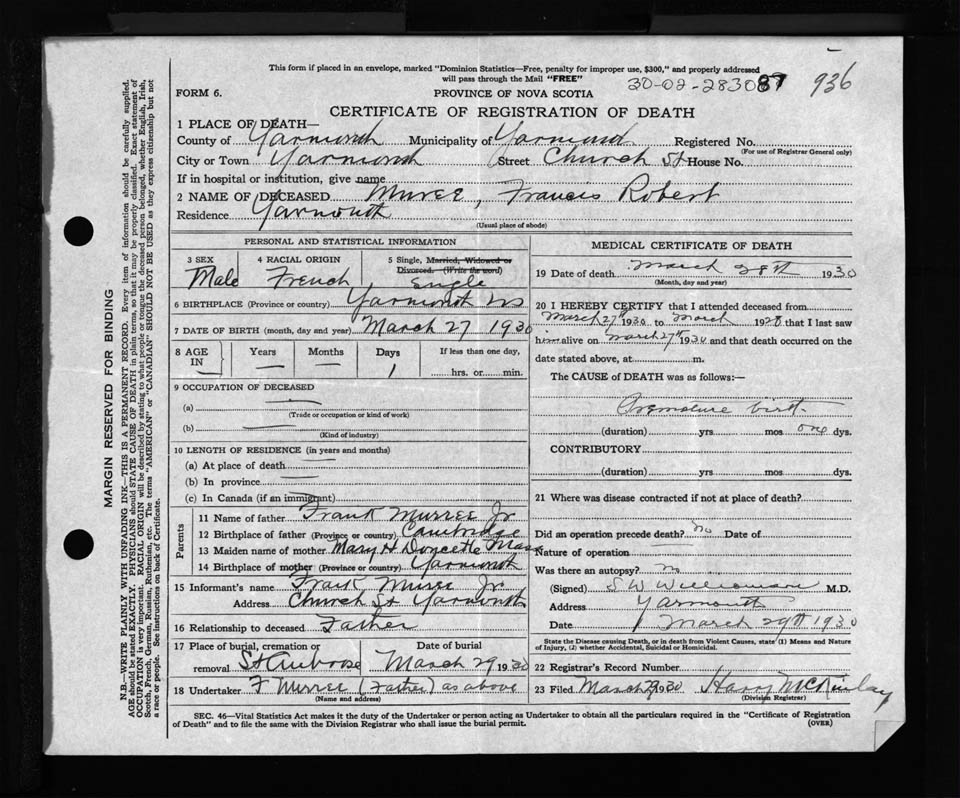 This form if placed in an envelope, marked "Dominion Statistics—Free, penalty for improper use, $300," and properly addressed
will pass through the Mail "FREE"
30-02-283087 936
FORM 6. PROVINCE OF NOVA SCOTIA
CERTIFICATE OF REGISTRATION OF DEATH
1 PLACE OF DEATH—
County of Yarmouth Municipality of Yarmouth Registered No.
(For use of Registrar General only)
City or Town Yarmouth Street Church St House No.
If in hospital or institution, give name
2 NAME OF DECEASED Muree, Francis Robert
Residence Yarmouth
(Usual place of abode)
PERSONAL AND STATISTICAL INFORMATION
3 SEX Male
4 RACIAL ORIGIN French
5 Single, Married, Widowed or Divorced. (Write the word) Single
6 BIRTHPLACE (Province or country) Yarmouth NS
7 DATE OF BIRTH (month, day and year) March 27 1930
8 AGE IN Years — Months — Days 1 If less than one day, hrs. or min.
9 OCCUPATION OF DECEASED
(a) —
(Trade or occupation or kind of work)
(b) —
(Kind of industry)
10 LENGTH OF RESIDENCE (in years and months)
(a) At place of death —
(b) In province —
(c) In Canada (if an immigrant) —
Parents
11 Name of father Frank Murree Jr
12 Birthplace of father (Province or country) Cambridge Mass
13 Maiden name of mother Mary H Doucette
14 Birthplace of mother (Province or country) Yarmouth
15 Informant's name Frank Muree Jr
Address Church St Yarmouth
16 Relationship to deceased Father
17 Place of burial, cremation or removal St Ambrose
Date of burial March 29 1930
18 Undertaker F Murree (Father) as above
(Name and address)
MEDICAL CERTIFICATE OF DEATH
19 Date of death March 28th 1930
(Month, day and year)
20 I HEREBY CERTIFY that I attended deceased from
March 27th 1930 to March 1928 that I last saw
him alive on March 27th 1930 and that death occurred on the
date stated above, at m.
The CAUSE of DEATH was as follows:—
Premature birth
(duration) yrs mos one dys.
CONTRIBUTORY
(duration) yrs. mos. dys.
21 Where was disease contracted if not at place of death?
Did an operation precede death? no Date of
Nature of operation —
Was there an autopsy? no
(Signed) S W Williamson M.D.
Address Yarmouth
Date March 29th 1930
State the Disease causing Death, or in death from Violent Causes, state (1) Means and Nature
of Injury, (2) whether Accidental, Suicidal or Homicidal.
22 Registrar's Record Number
23 Filed March 29 1930 Harry McKinlay
(Division Registrar)
SEC. 46—Vital Statistics Act makes it the duty of the Undertaker or person acting as Undertaker to obtain all the particulars required in the "Certificate of Registration
of Death" and to file the same with the Division Registrar who shall issue the burial permit. (OVER)
MARGIN RESERVED FOR BINDING
N.B.—WRITE PLAINLY WITH UNFADING INK—THIS IS A PERMANENT RECORD. Every item of information should be carefully supplied.
AGE should be stated EXACTLY. PHYSICIANS should STATE CAUSE OF DEATH in plain terms, so that it may be properly classified. Exact statement of
OCCUPATION is very important. RACIAL ORIGIN will be described by stating to what people or tongue the deceased person belonged, whether English, Irish,
Scotch, French, German, Russian, Ruthenian, etc. The terms "AMERICAN" or "CANADIAN" SHOULD NOT BE USED as they express citizenship but not
a race or people. See instructions on back of Certificate.